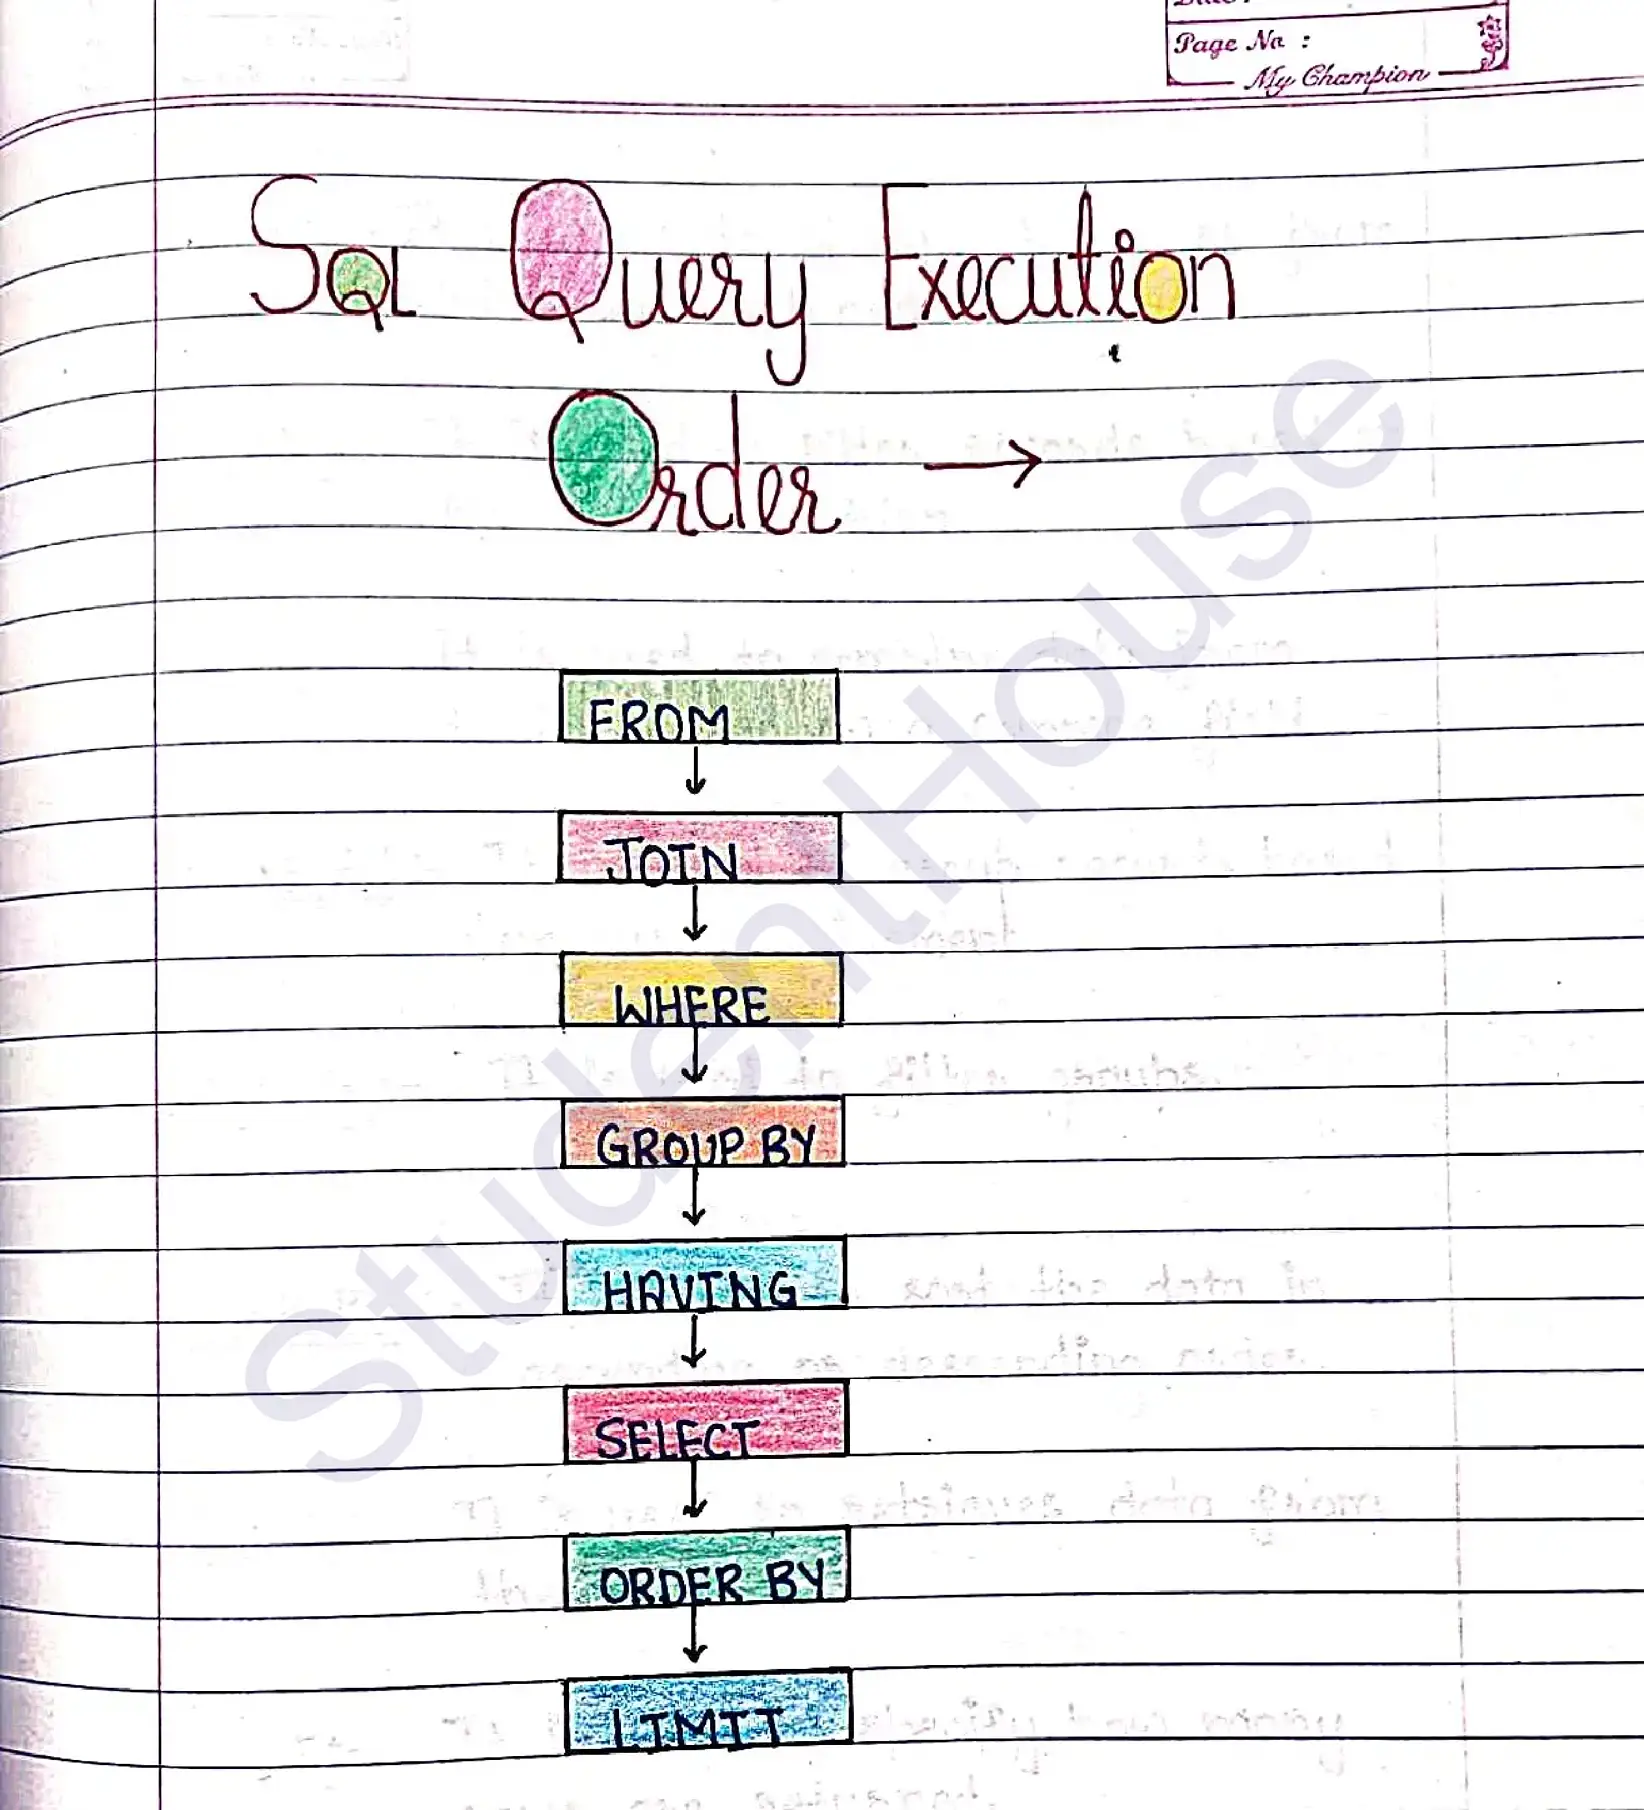 Page No :
My Champion
SQL Query Execution
Order →
FROM
JOIN
WHERE
GROUP BY
HAVING
SELECT
ORDER BY
LIMIT
StudentHouse